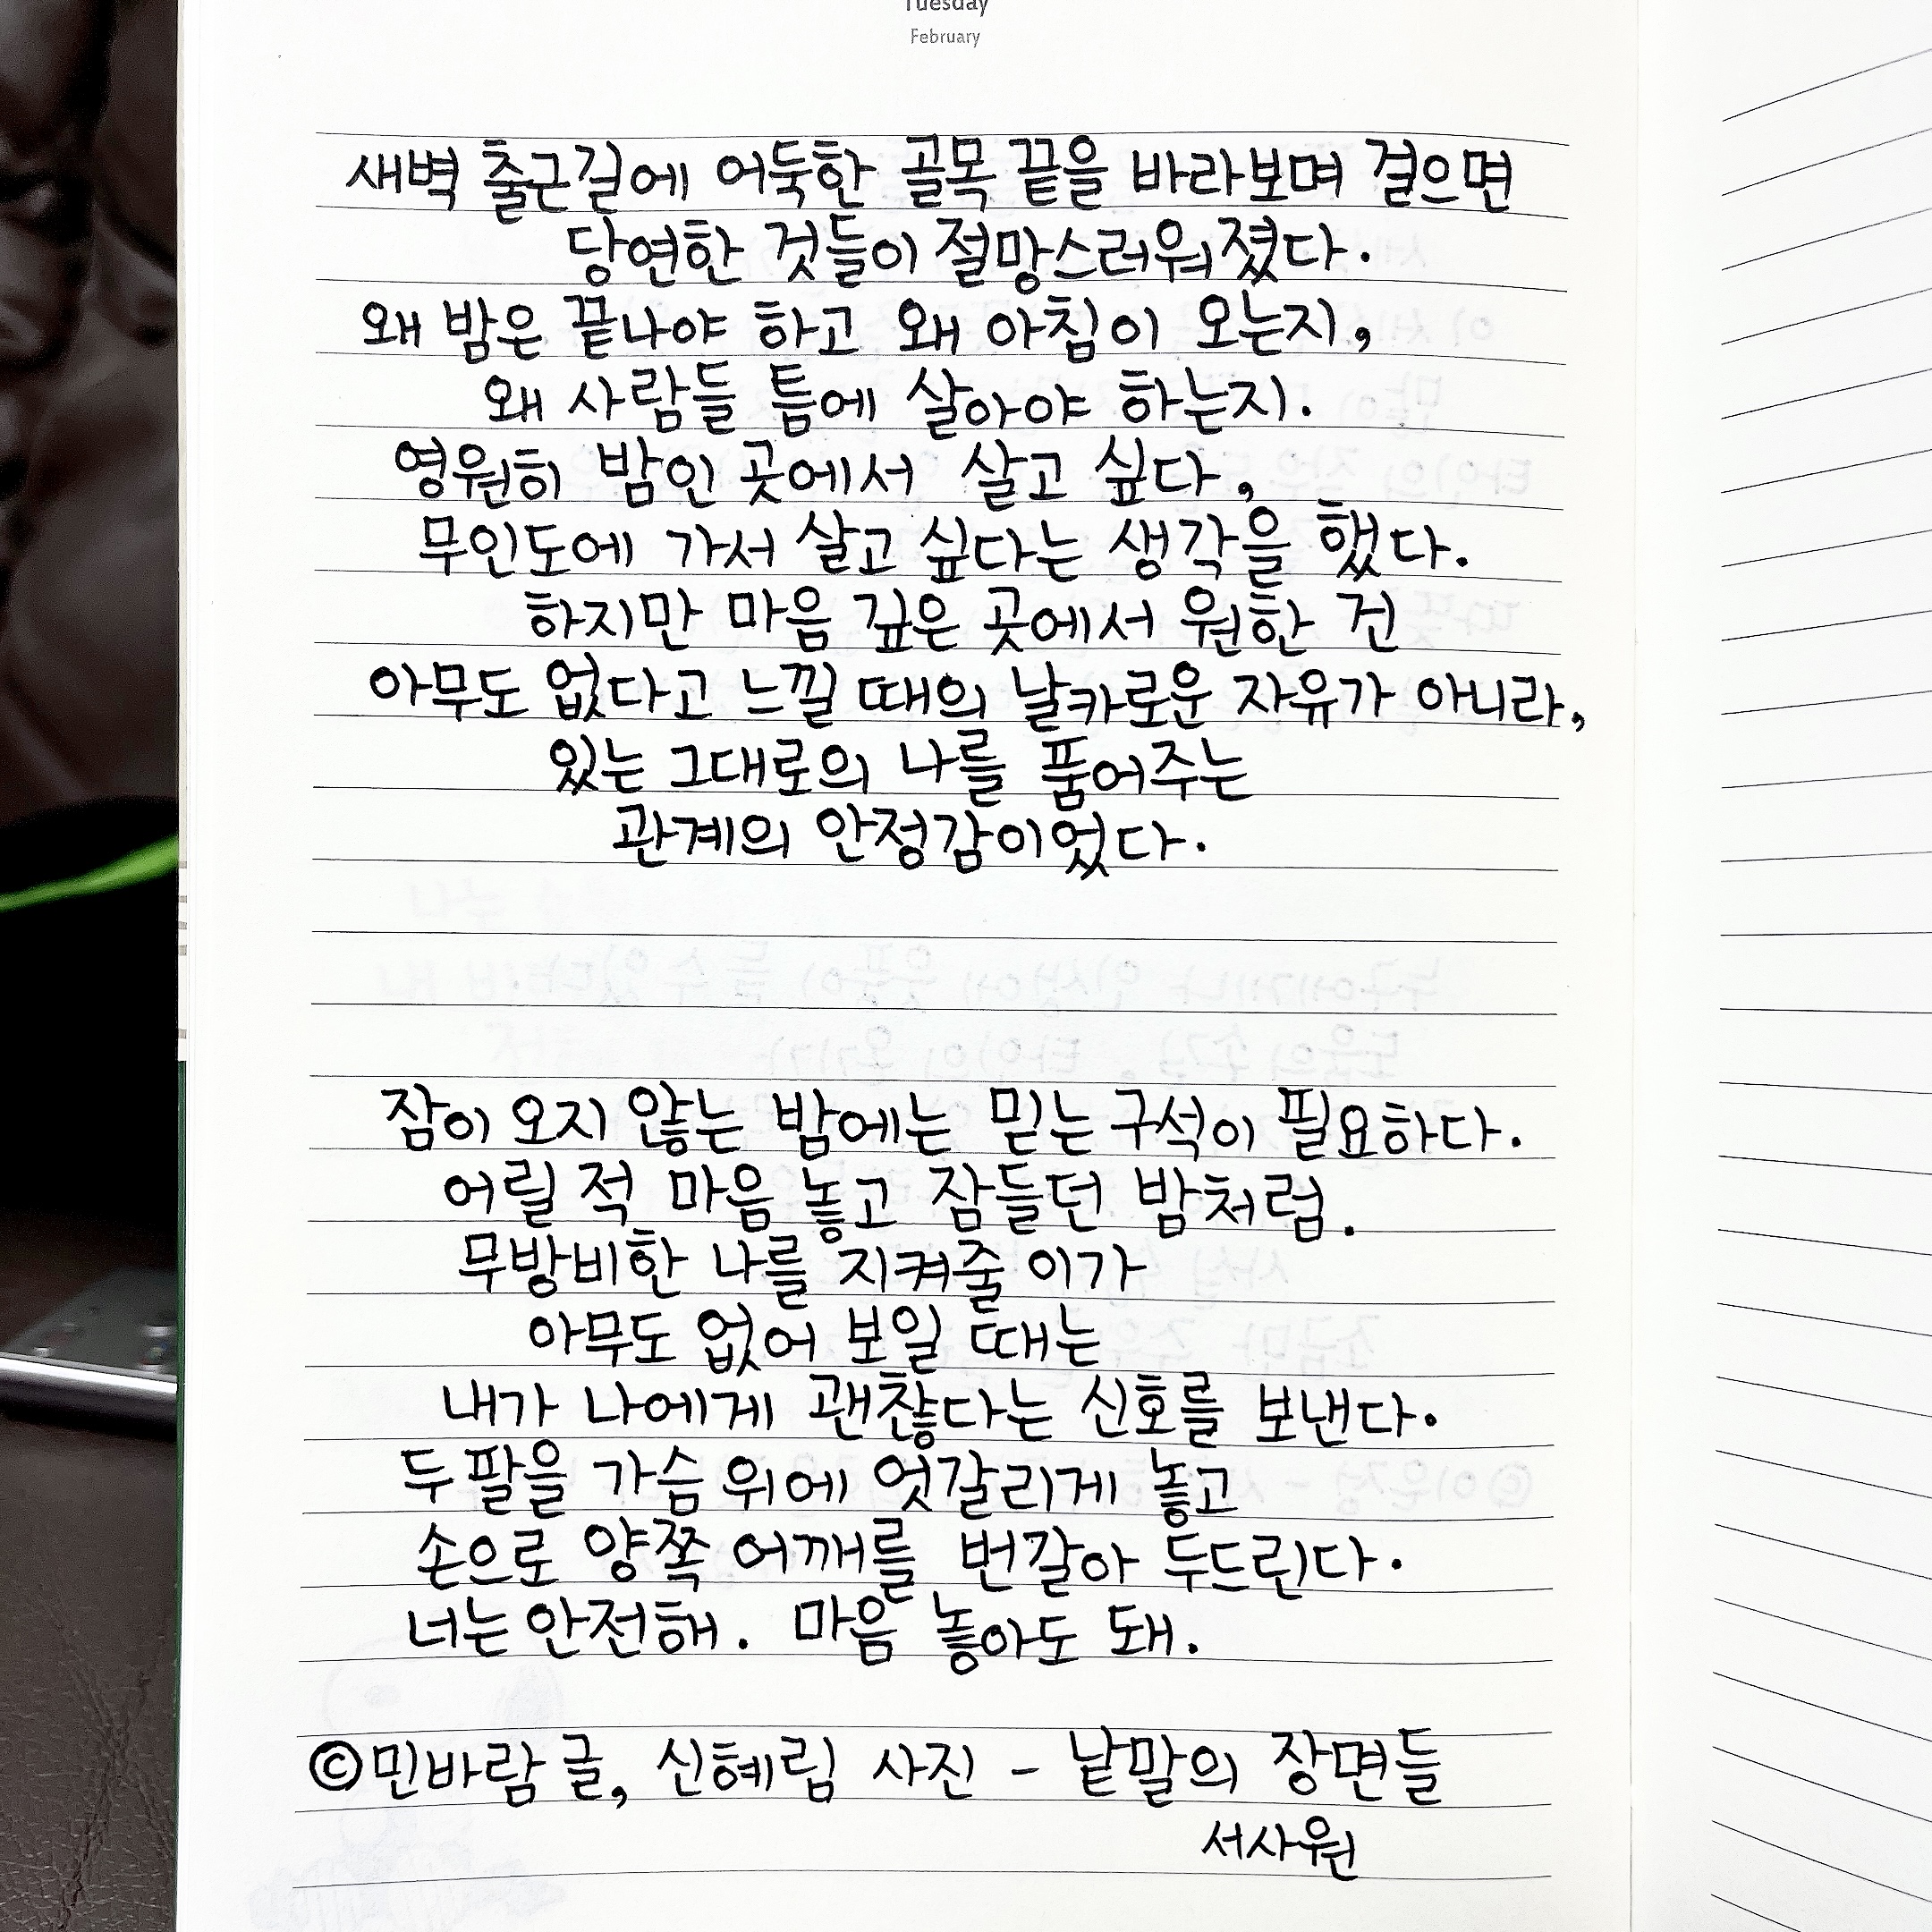 Tuesday
February
새벽 출근길에 어둑한 골목 끝을 바라보며 걸으면
당연한 것들이 절망스러워졌다.
왜 밤은 끝나야 하고 왜 아침이 오는지,
왜 사람들 틈에 살아야 하는지.
영원히 밤인 곳에서 살고 싶다,
무인도에 가서 살고 싶다는 생각을 했다.
하지만 마음 깊은 곳에서 원한 건
아무도 없다고 느낄 때의 날카로운 자유가 아니라,
있는 그대로의 나를 품어주는
관계의 안정감이었다.
잠이 오지 않는 밤에는 믿는 구석이 필요하다.
어릴 적 마음 놓고 잠들던 밤처럼.
무방비한 나를 지켜줄 이가
아무도 없어 보일 때는
내가 나에게 괜찮다는 신호를 보낸다.
두 팔을 가슴 위에 엇갈리게 놓고
손으로 양쪽 어깨를 번갈아 두드린다.
너는 안전해. 마음 놓아도 돼.
©민바람 글, 신혜림 사진 - 낱말의 장면들
서사원